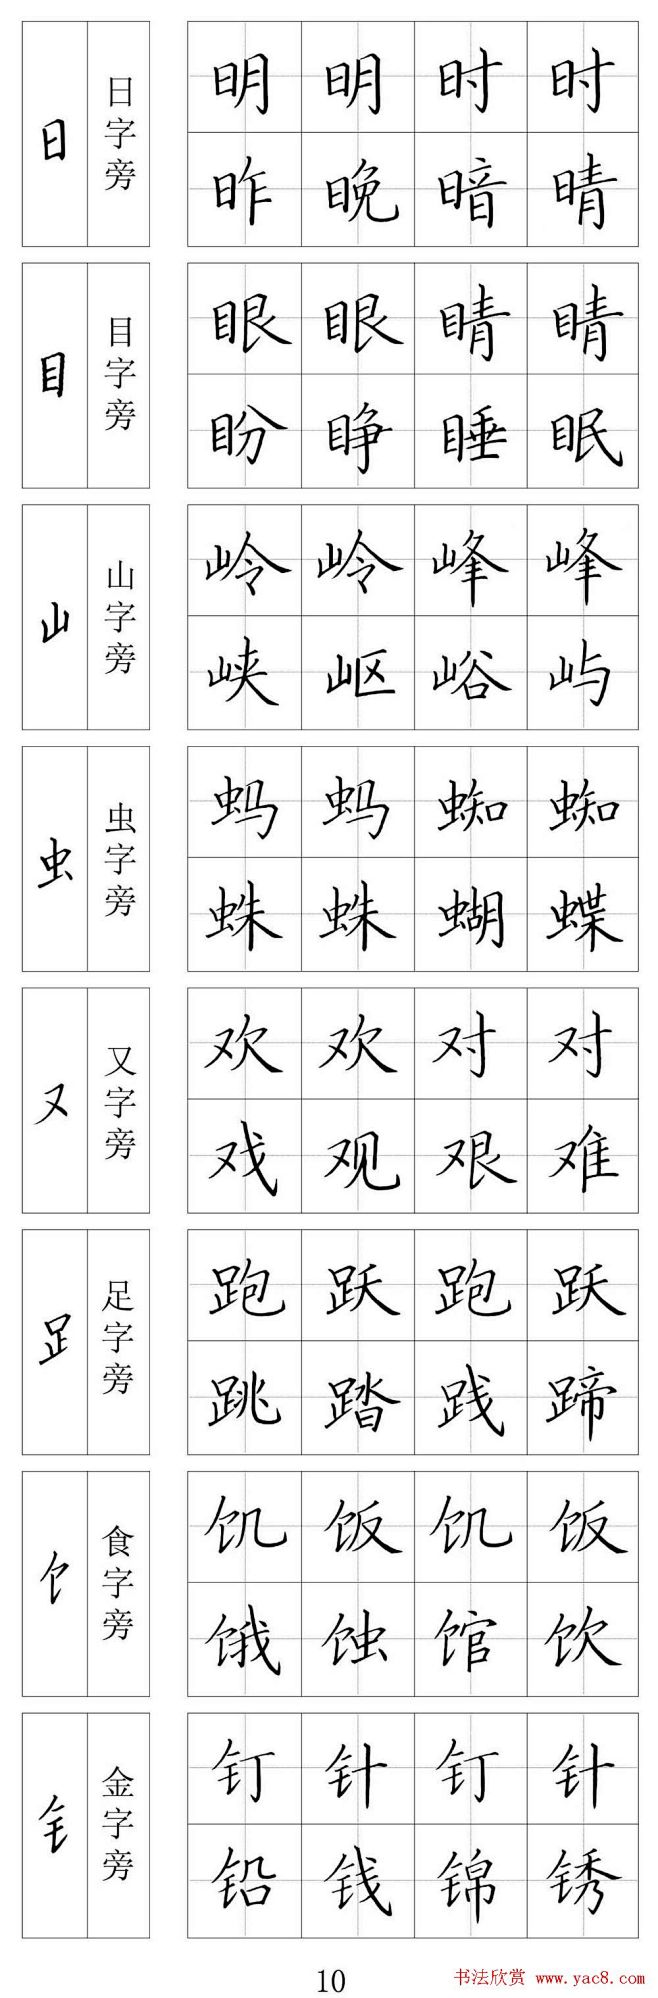 日 日字旁 明 明 时 时
昨 晚 暗 晴
目 目字旁 眼 眼 睛 睛
盼 睁 睡 眠
山 山字旁 岭 岭 峰 峰
峡 岖 峪 屿
虫 虫字旁 蚂 蚂 蜘 蜘
蛛 蛛 蝴 蝶
又 又字旁 欢 欢 对 对
戏 观 艰 难
𧾷 足字旁 跑 跃 跑 跃
跳 踏 践 蹄
饣 食字旁 饥 饭 饥 饭
饿 蚀 馆 饮
钅 金字旁 钉 针 钉 针
铅 钱 锦 锈
10
书法欣赏 www.yac8.com